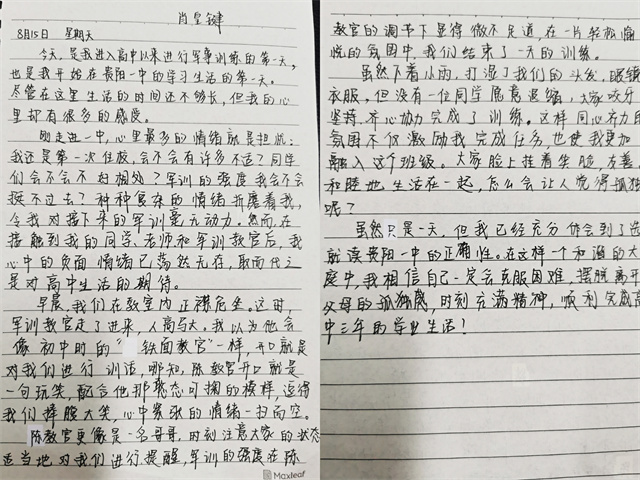 肖皇键
8月15日 星期天
今天,是我进入高中以来进行军事训练的第一天,
也是我开始在贵阳一中的学习生活的第一天。
尽管在这里生活的时间还不够长,但我的心
里却有很多的感慨。
刚走进一中,心里最多的情绪就是担忧:
我还是第一次住校,会不会有许多不适?同学
们会不会不好相处?军训的强度我会不会
挺不过去?种种复杂的情绪折磨着我,
令我对接下来的军训毫无动力。然而,在
接触到我的同学、老师和军训教官后,我
心中的负面情绪已荡然无存,取而代之
是对高中生活的期待。
早晨,我们在教室内正襟危坐。这时,
军训教官走了进来,人高马大。我以为他会
像初中时的“铁面教官”一样,开口就是
对我们进行训话,哪知,陈教官开口就是
一句玩笑,配合他那憨态可掬的模样,逗得
我们捧腹大笑,心中紧张的情绪一扫而空。
陈教官更像是一名哥哥,时刻注意大家的状态
适当地对我们进行提醒,军训的强度在陈
教官的调节下显得微不足道,在一片轻松愉
悦的氛围中,我们结束了一天的训练。
虽然下着小雨,打湿了我们的头发,眼镜
衣服,但没有一位同学愿意退缩,大家咬牙
坚持,齐心协力完成了训练。这样同心齐力的
氛围不仅激励我完成任务,也使我更加
融入这个班级。大家脸上挂着笑脸,友善
和睦地生活在一起,怎么会让人觉得孤独
呢?
虽然只是一天,但我已经充分体会到了选
就读贵阳一中的正确性。在这样一个和谐的大
庭中,我相信自己一定会克服困难,摆脱离开
父母的孤独感,时刻充满精神,顺利完成高
中三年的学业生活!
Maxleaf